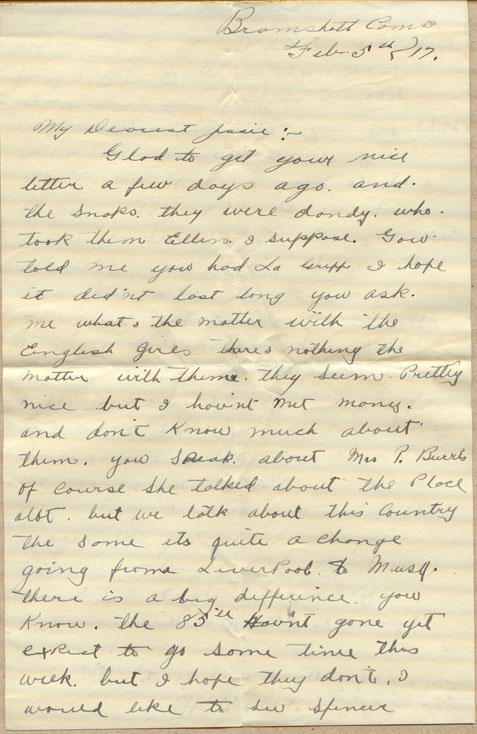 Bramshott Camp
Feb 5th/17.
My Dearest Jssie:-
Glad to get your nice
letter a few days ago. and.
the snaps. they were dandy. who.
took them Ellen. I suppose. Gow.
told me you had La Gripp I hope
it did'nt last long you ask.
me whats the matter with the
English Girls. theres nothing the
matter with theme. they seem. Pretty
nice but I hav'nt met many.
and don't Know much about
them. you speak. about Mrs P. Burris
of course she talked about the Place
alot. but we talk about this Country
the same its quite a change
going froma LiverPool to Musq.
there is a big difference you
Know. the 85th Hav'nt gone yet
expect to go some time this
week. but I hope they don't. I
would like to see Spencer